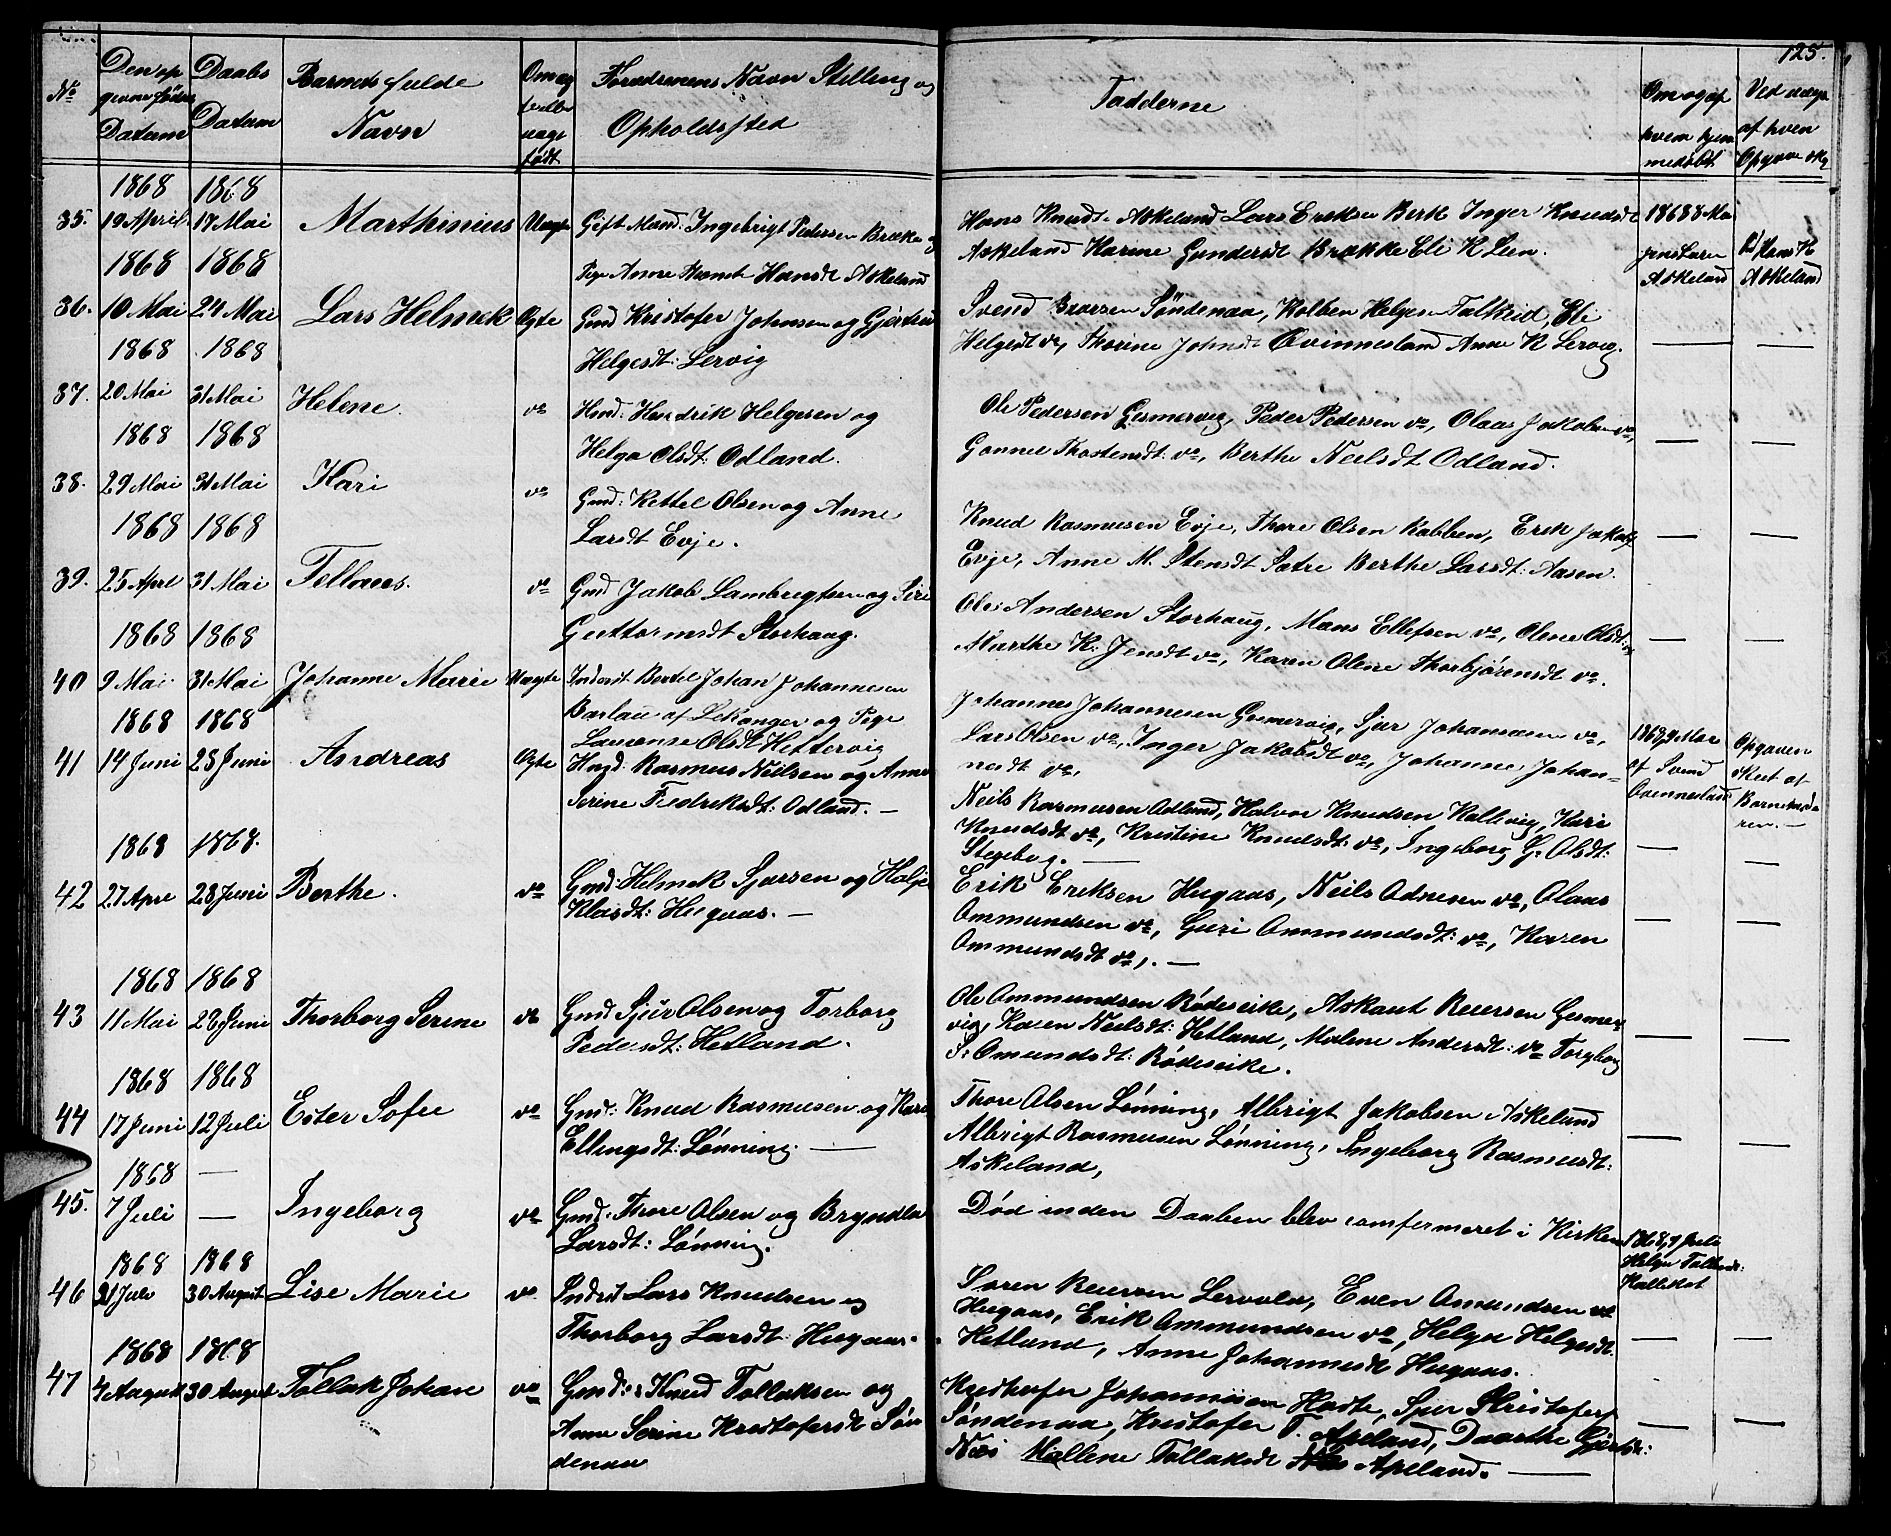 125.
No
Den op
givne fødsel
Datum
Daabs
Datum
Barnets fulde
Navn
Om ægte
eller
uægte
født
Forældrenes Navn Stilling og
Opholdssted
Fadderne
Om og af
hvem hjem
medøbt
Ved
af hvem
Opgave
1868 1868
35. 19 April 17 Mai Marthinius Uægte Gift Mand: Ingebrigt Pedersen Brække og
Pige Anne Hansdt Askeland
Hans Knudt. Askeland Lars Eriksen Berk Inger Knudsdt
Askeland Karine Gundersdt Brække Eli K Lien.
1868 8 Mai
Jens Larsen
Askeland
Hans K
Askeland
1868 1868
36. 10 Mai 24 Mai Lars Helmek Ægte Gmd Kristofer Johnsen og Gjertrud
Helgesdt: Lervig
Svend Baarsen Søndenaa, Kolben Helgesen Falkeid, Eli
Helgesdt vo, Thorine Johnsdt Qvinnesland Anne K Lervig.
1868 1868
37. 20 Mai 31 Mai Helene. vo Hmd: Hendrik Helgesen og
Helga Olsdt: Odland.
Ole Pedersen Gesmervig, Peder Pedersen vo, Olaas Jakobsen vo,
Gonnel Thostensdt: vo, Berthe Neilsdt Odland.
1868 1868
38. 29 Mai 31 Mai Kari vo Gmd: Kettel Olsen og Anne
Larsdt Evje.
Knud Rasmusen Evje, Thore Olsen Kobben, Erik Jakobs
Evje, Anne M. Stensdt Sætre Berthe Larsdt: Aasen.
1868 1868
39. 25 Aprl 31 Mai Tellnes. vo Gmd Jakob Lambregtsen og Siri
Guttormsdt Storhaug.
Ole Andersen Storhaug, Mons Ellefsen vo, Olene Olsdt: vo
Marthe K. Jensdt vo, Karen Olene Thorbjørensdt vo.
1868 1868
40 9 Mai 31 Mai Johanne Marie Uægte Inderst Bertel Johan Johannesen
Barlau af Lekanger og Pige
Laurense Olsdt Hettervig
Johannes Johannesen Gesmervig, Sjur Johannsen vo,
Lars Olsen vo, Inger Jakobsdt vo, Johanne Johan-
nesdt vo.
1868, 9 Mai
af Svend
Qvinnesland
Opgaven
skeet af
Barnemode
ren. —
1868 1868
41 14 Juni 28 Juni Andreas Ægte Hmd: Rasmus Neilsen og Anne
Serine Fredriksdt: Odland. —
Neils Rasmusen Odland, Halvor Knudsen Kallevig, Kari
Knudsdt vo, Kristine Knudsdt: vo, Ingeborg G. Olsdt:
Stegeberg. —
1868 1868.
42 27 Apr 28 Juni Berthe. vo Gmd: Helmek Sjursen og Halje
Klasdt: Hugaas. —
Erik Eriksen Hugaas, Neils Adnesen vo, Olaas
Ommundsen vo, Guri Ommundsdt: vo, Karen
Ommundsdt vo, . —
1868 1868
43 11 Mai 28 Juni Thorborg Serine vo Gmd Sjur Olsen og Torborg
Pedersdt: Hetland.
Ole Ommundsen Rødseike, Askaut Reiersen Gesmer
vig, Karen Neilsdt: Hetland, Malene Andersdt: vo Torgborg
S: Omundsdt: Rødseike.
1868 1868
44 17 Juni 12 Juli Ester Sofie vo Gmd: Knud Rasmusen og Kari
Ellingsdt: Lønning. —
Thore Olsen Lønning, Albrigt Jakobsen Askeland
Albrigt Rasmusen Lønning, Ingeborg Rasmusdt:
Askeland,
1868 —
45. 7 Juli — Ingeborg vo Gmd: Thore Olsen og Bryndla
Larsdt: Lønning.
Død inden Daaben blev comfermeret i Kirken
1868, 7 Juli
Helge Tallaks:
Hallekot
1868 1868
46 21 Juli 30 August Lise Marie vo Indrst Lars Knudsen og
Thorborg Larsdt: Hugaas.
Søren Reiersen Lervola, Even Omundsen vo
Hugaas, Erik Ommundsen vo, Helga Helgesdt.
Hetland, Anne Johannesdt Hugaas.
1868 1868
47 4 August 30 August Tollak Johan vo Gmd: Knud Tollaksen og
Anne Serine Kristofersdt Søn
denaa
Kristofer Johannesen Hodte, Sjur Kristofers
Søndenaa, Kristofer T. Apeland, Daarthe Gjertsdt:
Næs Mallene Tollaksdt Apeland. —